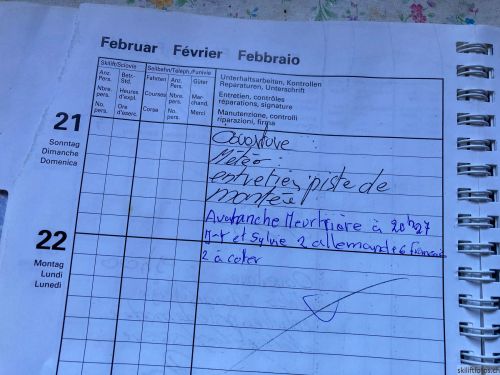 Februar Février Febbraio
Skilift/Sciovie
Seilbahn/Teleph./Funivie
Unterhaltsarbeiten, Kontrollen
Reparaturen, Unterschrift
Entretien, contrôles
réparations, signature
Manutenzione, controlli
riparazioni, firma
Anz. Pers. Betr.-Std. Fahrten Anz. Pers. Güter
Nbre. Pers. Heures d'expl. Courses Nbre. Pers. Marchand.
No. Pers. Ore d'eserc. Corse No. Pers. Merci
21
Sonntag
Dimanche
Domenica
Ouverture :
Météo :
entretien piste de
montée
Avalanche Meurtrière à 20h27
et Sylvie 2 allemands 6 français
22
Montag
Lundi
Lunedì
2 à coter
skiliftfotos.ch